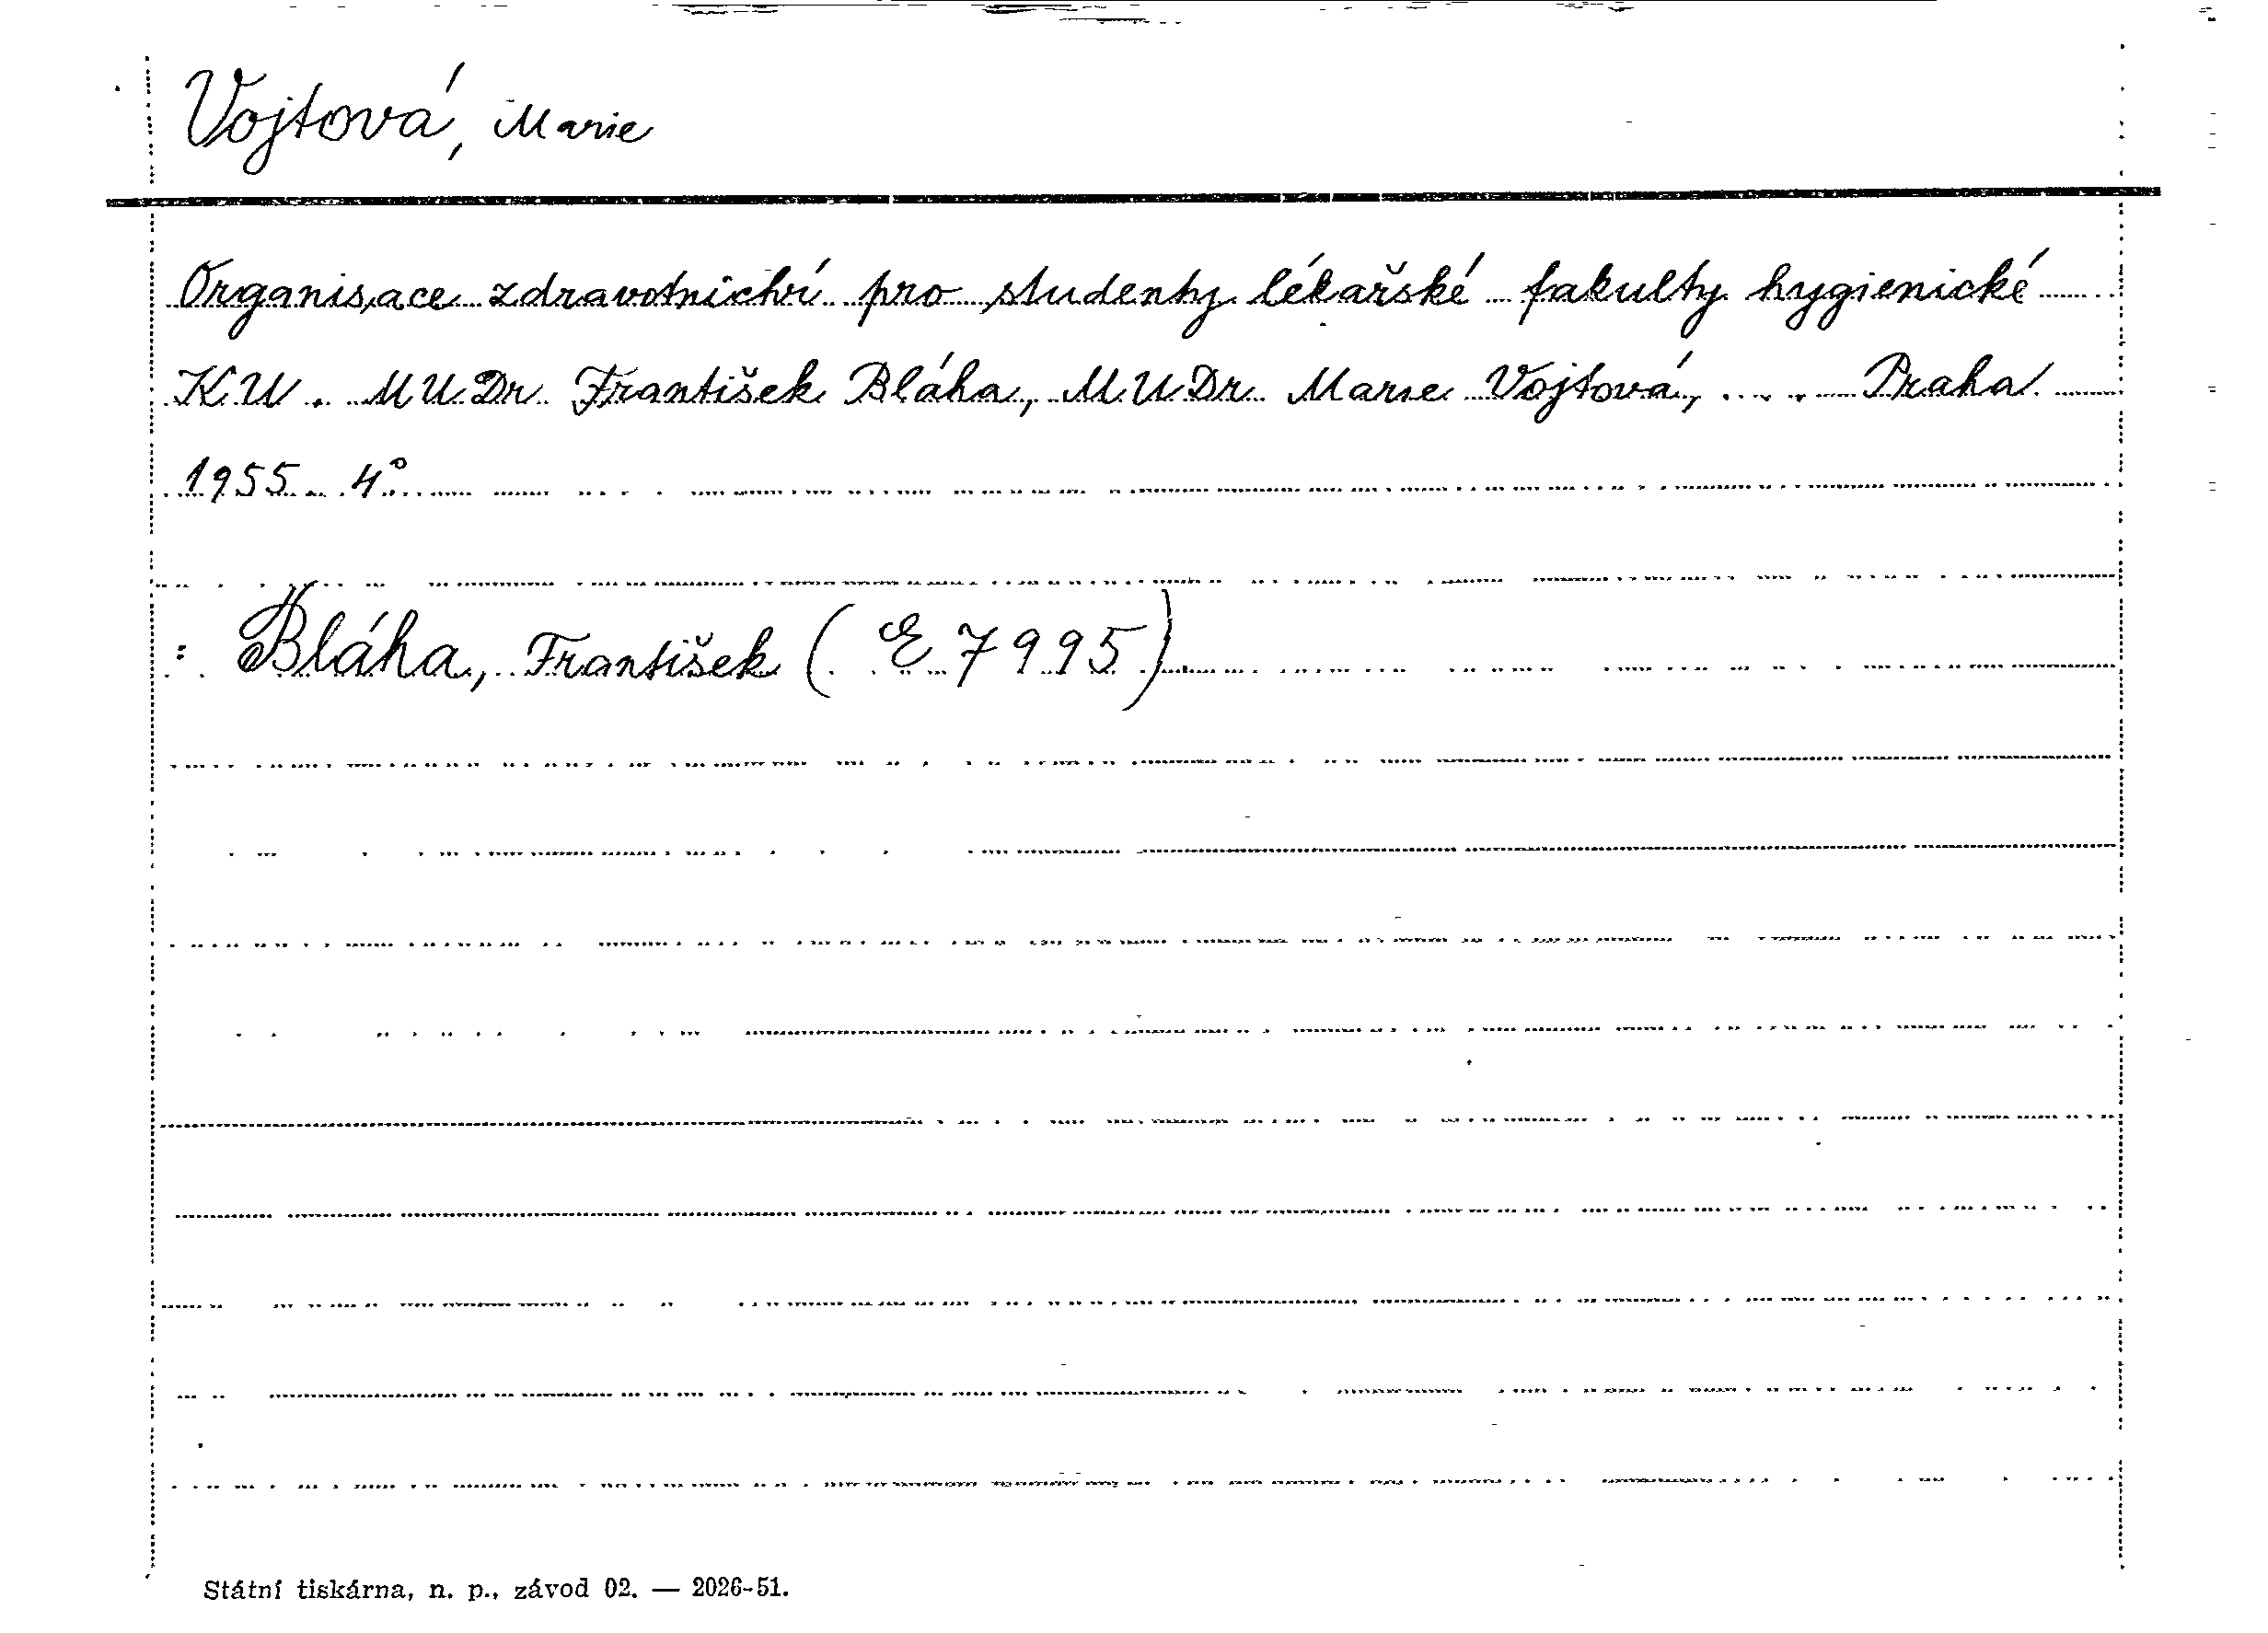 Vojtová, Marie
Organisace zdravotnictví pro studenty lékařské fakulty hygienické
KU. MUDr. František Bláha, MUDr. Marie Vojtová, .... Praha
1955 4°
: Bláha, František (E 7995)
Státní tiskárna, n. p., závod 02. — 2026-51.